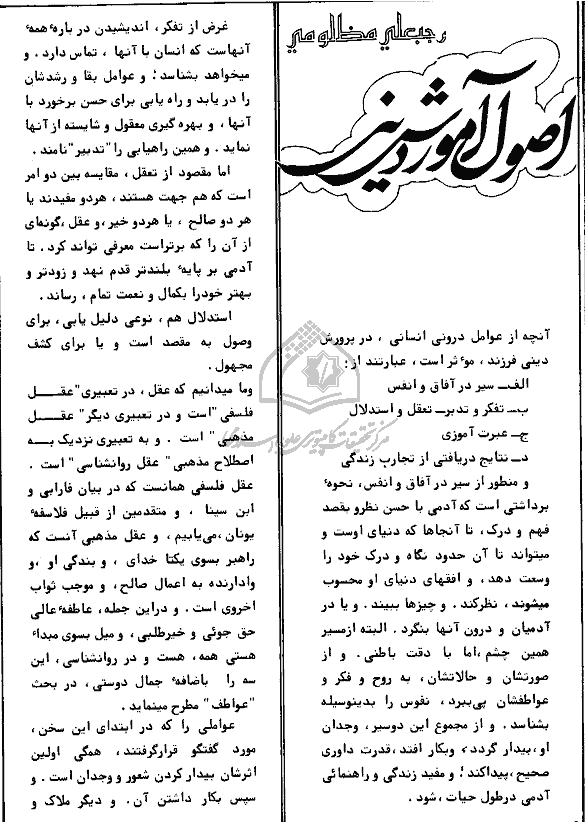 رجبعلی مظلومی
اصول آموزش دینی
آنچه از عوامل درونی انسانی ، در پرورش
دینی فرزند ، مؤثر است ، عبارتند از :
الف ــ سیر در آفاق و انفس
ب ــ تفکر و تدبر ــ تعقل و استدلال
ج ــ عبرت آموزی
د ــ نتایج دریافتی از تجارب زندگی
و منظور از سیر در آفاق و انفس ، نحوهٔ
برداشتی است که آدمی با حسن نظر و بقصد
فهم و درک ، تا آنجاها که دنیای اوست و
میتواند تا آن حدود نگاه و درک خود را
وسعت دهد ، و افقهای دنیای او محسوب
میشوند ، نظرکند . و چیزها ببیند . و یا در
آدمیان و درون آنها بنگرد . البته ازمسیر
همین چشم ،اما با دقت باطنی . و از
صورتشان و حالاتشان ، به روح و فکر و
عواطفشان پی‌ببرد ، نفوس را بدینوسیله
بشناسد . و از مجموع این دوسیر ، وجدان
او ،بیدار گردد ، وبکار افتد ، قدرت داوری
صحیح ،پیداکند ؛ و مفید زندگی و راهنمائی
آدمی درطول حیات ، شود .
غرض از تفکر ، اندیشیدن در بارهٔ همهٔ
آنهاست که انسان با آنها ، تماس دارد . و
میخواهد بشناسد ؛ و عوامل بقا و رشدشان
را در یابد و راه یابی برای حسن برخورد با
آنها ، و بهره گیری معقول و شایسته از آنها
نماید . و همین راهیابی را "تدبیر" نامند .
اما مقصود از تعقل ، مقایسه بین دو امر
است که هم جهت هستند ، هردو مفیدند یا
هر دو صالح ، یا هردو خیر ،و عقل ،گونه‌ای
از آن را که برتراست معرفی تواند کرد . تا
آدمی بر پایهٔ بلندتر قدم نهد و زودتر و
بهتر خودرا بکمال و نعمت تمام ، رساند .
استدلال هم ، نوعی دلیل یابی ، برای
وصول به مقصد است و یا برای کشف
مجهول .
وما میدانیم که عقل ، در تعبیری "عقـــل
فلسفی "است و در تعبیری دیگر "عقـــل
مذهبی " است . و به تعبیری نزدیک بـــه
اصطلاح مذهبی "عقل روانشناسی " است .
عقل فلسفی همانست که در بیان فارابی و
ابن سینا ، و متقدمین از قبیل فلاسفهٔ
یونان ،می‌یابیم ، و عقل مذهبی آنست که
راهبر بسوی یکتا خدای ، و بندگی او ،و
وادارنده به اعمال صالح ، و موجب ثواب
اخروی است . و دراین جمله ، عاطفهٔ عالی
حق جوئی و خیرطلبی ، و میل بسوی مبداءِ
هستی همه ، هست و در روانشناسی ، این
سه را باضافهٔ جمال دوستی ، در بحث
"عواطف" مطرح مینماید .
عواملی را که در ابتدای این سخن ،
مورد گفتگو قرارگرفتند ، همگی اولین
اثرشان بیدار کردن شعور و وجدان است . و
سپس بکار داشتن آن . و دیگر ملاک و
مرکز تحقیقات کامپیوتری علوم اسلامی